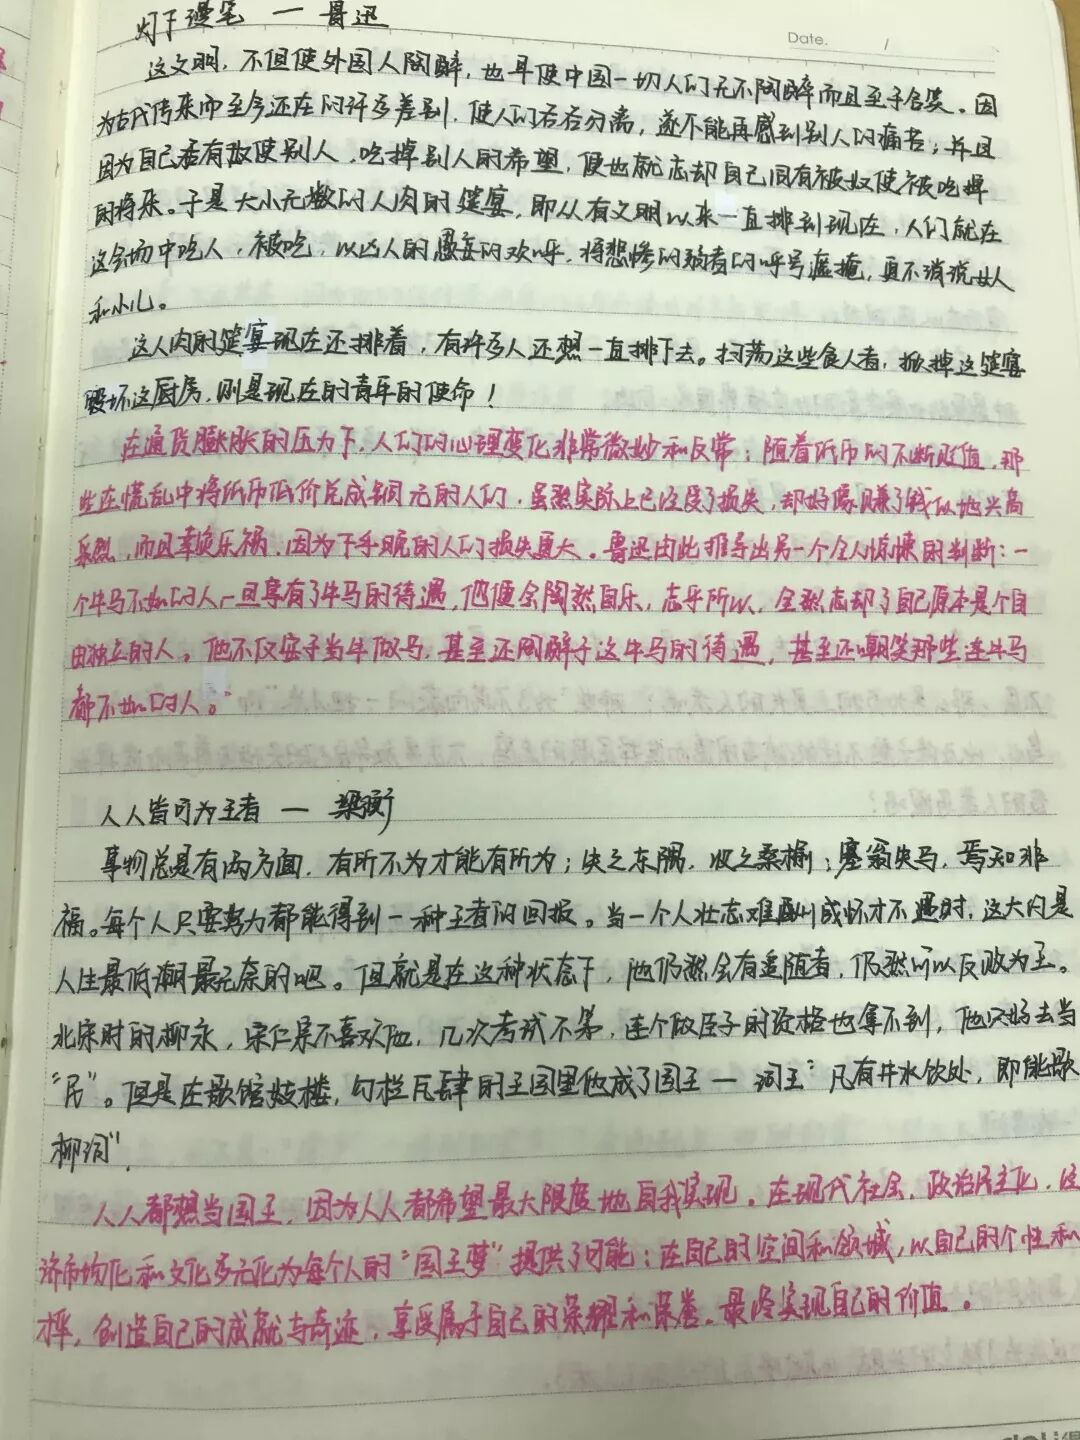 灯下漫笔 — 鲁迅
Date. /
这文明，不但使外国人陶醉，也早使中国一切人们无不陶醉而且至于含笑。因
为古代传来而至今还在的许多差别，使人们各各分离，遂不能再感到别人的痛苦；并且
因为自己各有奴使别人，吃掉别人的希望，便也就忘却自己同有被奴使被吃掉
的将来。于是大小无数的人肉的筵宴，即从有文明以来一直排到现在，人们就在
这会场中吃人，被吃，以凶人的愚妄的欢呼，将悲惨的弱者的呼号遮掩，更不消说女人
和小儿。
这人肉的筵宴现在还排着，有许多人还想一直排下去。扫荡这些食人者，掀掉这筵宴
毁坏这厨房，则是现在的青年的使命！
在通货膨胀的压力下，人们的心理变化非常微妙和反常；随着纸币的不断贬值，那
些在慌乱中将纸币低价兑成铜元的人们，虽然实际上已经受了损失，却好像赚了钱似地兴高
采烈，而且幸灾乐祸，因为下手晚的人们损失更大。鲁迅由此推导出另一个令人惊悚的判断：一
个牛马不如的人一旦享有了牛马的待遇，他便会陶然自乐，忘乎所以，全然忘却了自己原本是个自
由独立的人。他不仅安于当牛做马，甚至还陶醉于这牛马的待遇，甚至还嘲笑那些连牛马
都不如的人。
人人皆可为王者 — 梁衡
事物总是有两方面，有所不为才能有所为；失之东隅，收之桑榆；塞翁失马，焉知非
福。每个人只要努力都能得到一种王者的回报。当一个人壮志难酬或怀才不遇时，这大约是
人生最低潮最无奈的吧。但就是在这种状态下，他仍然会有追随者，仍然可以反败为王。
北宋时的柳永，宋仁宗不喜欢他，几次考试不第，连个做臣子的资格也拿不到，他只好去当
“民”。但是在歌馆妓楼，勾栏瓦肆的王国里他成了国王 — 词王“凡有井水饮处，即能歌
柳词”。
人人都想当国王，因为人人都希望最大限度地自我实现。在现代社会，政治民主化，经
济市场化和文化多元化为每个人的“国王梦”提供了可能：在自己的空间和领域，以自己的个性和
创造自己的成就与奇迹，享受属于自己的荣耀和荣誉。最终实现自己的价值。